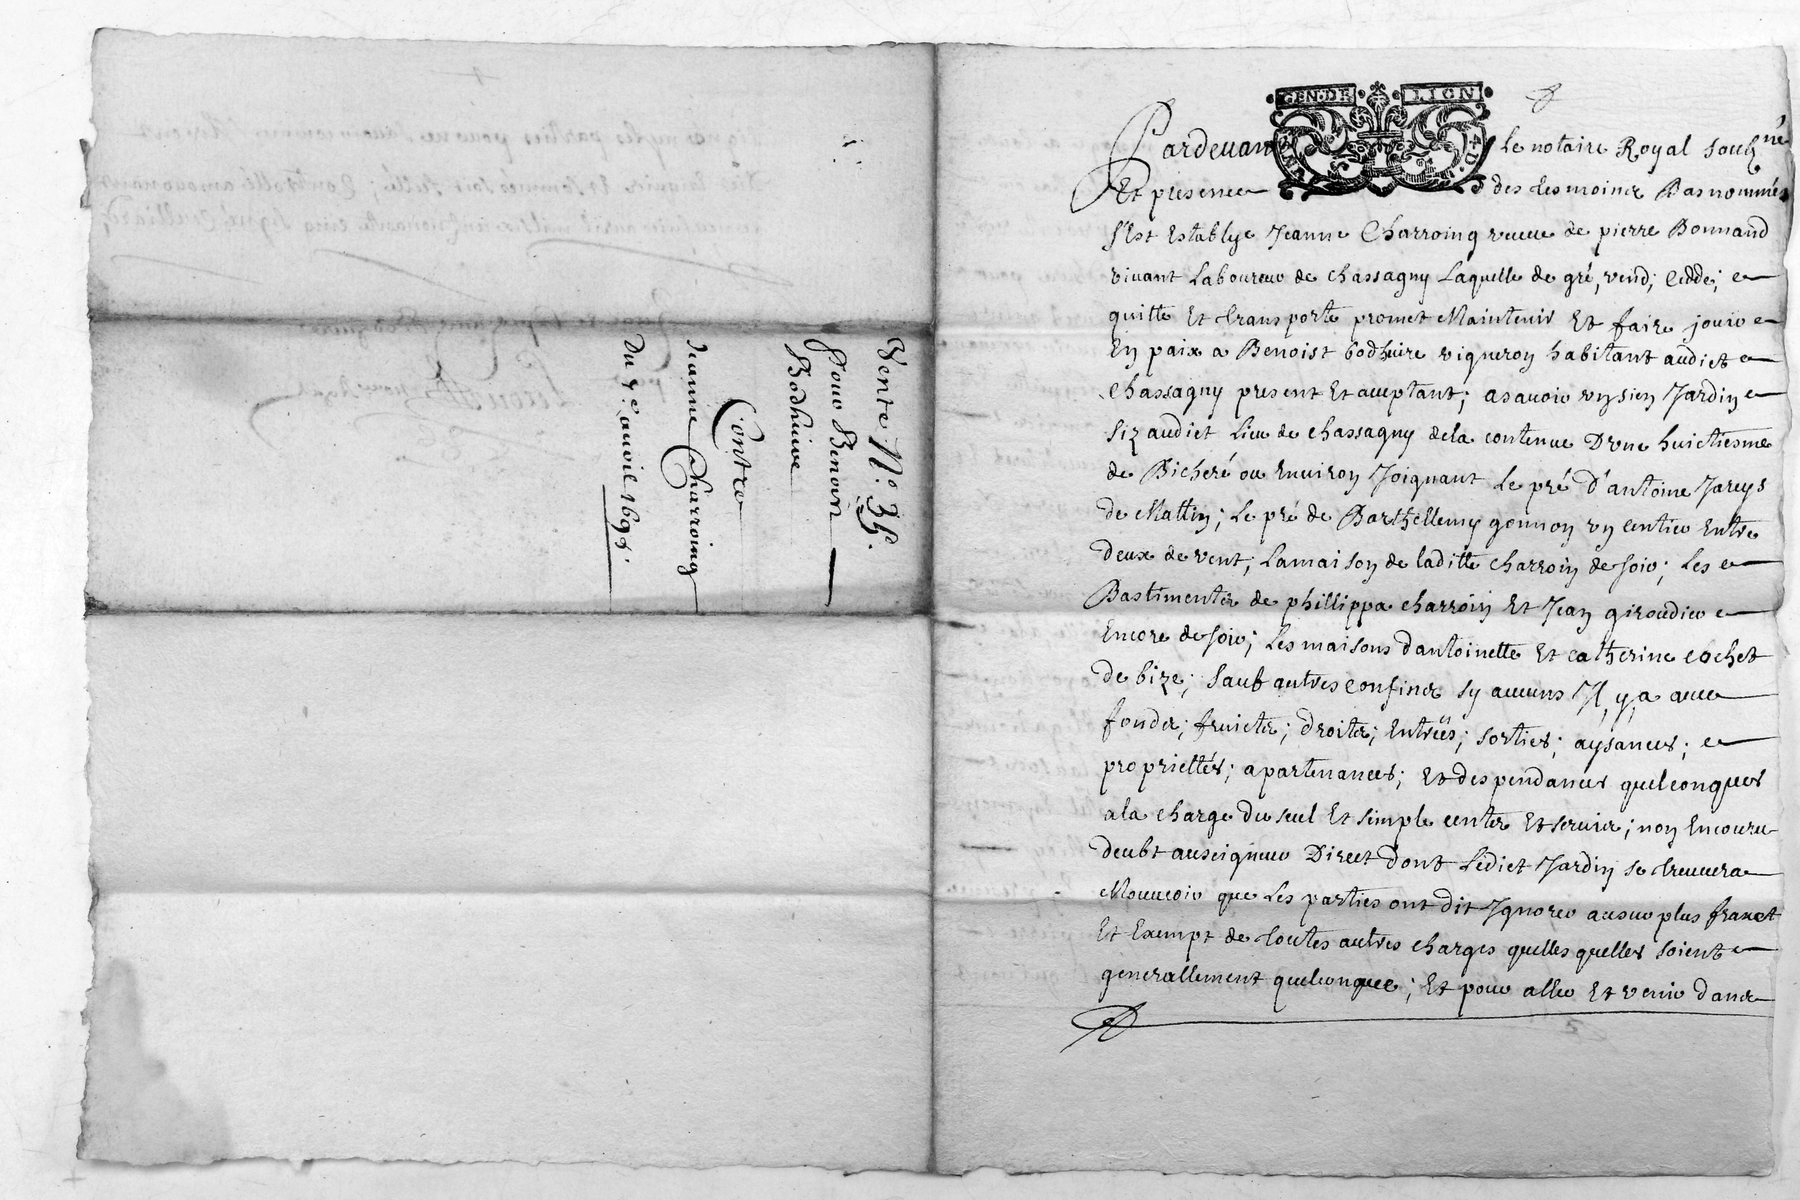 Vente N.° 35.
Pour Benoist
Bodhuire
Contre
Jeanne Charroing
Du 4.e avril 1695.
GEN. DE LION
Pardevant Le notaire Royal soubzné
Et presence des tesmoins Bas nommés
s'Est Establye Jeanne Charroing veuve de pierre Bonnand
vivant Laboureur de chassagny Laquelle de gré, vend; cedde;
quitte Et transporte promet Maintenir Et faire jouir
En paix a Benoist bodhuire vigneron habitant audict
chassagny present Et aceptant; asavoir un sien Jardin
siz audict Lieu de chassagny dela contenue D'une huictiesme
de Bicheré ou Environ Joignant Le pré d'antoine Jareys
de Mattin; Le pré de Barthellemy gonnon un centier Entre
deux de vent; La maison de laditte charroin de soir; Les
Bastiments de phillippa charroin Et Jean giroudier
Encore de soir; Les maisons d'antoinette Et catherine cochet
de bize; sauf autres confins sy aucuns Il y a avec
fonds; fruicts; droits; Entréës; sorties; aysances;
propriettés; apartenances; Et despendances quelconques
ala charge du seul Et simple cents Et servis; non Encouru
deubt au seigneur Direct dont Ledict Jardin se treuvera
Mouvoir que Les parties ont dit Ignorer au sur plus franct
Et Exempt de toutes autres charges quelles quelles soient
generallement quelconques; Et pour aller Et venir dans